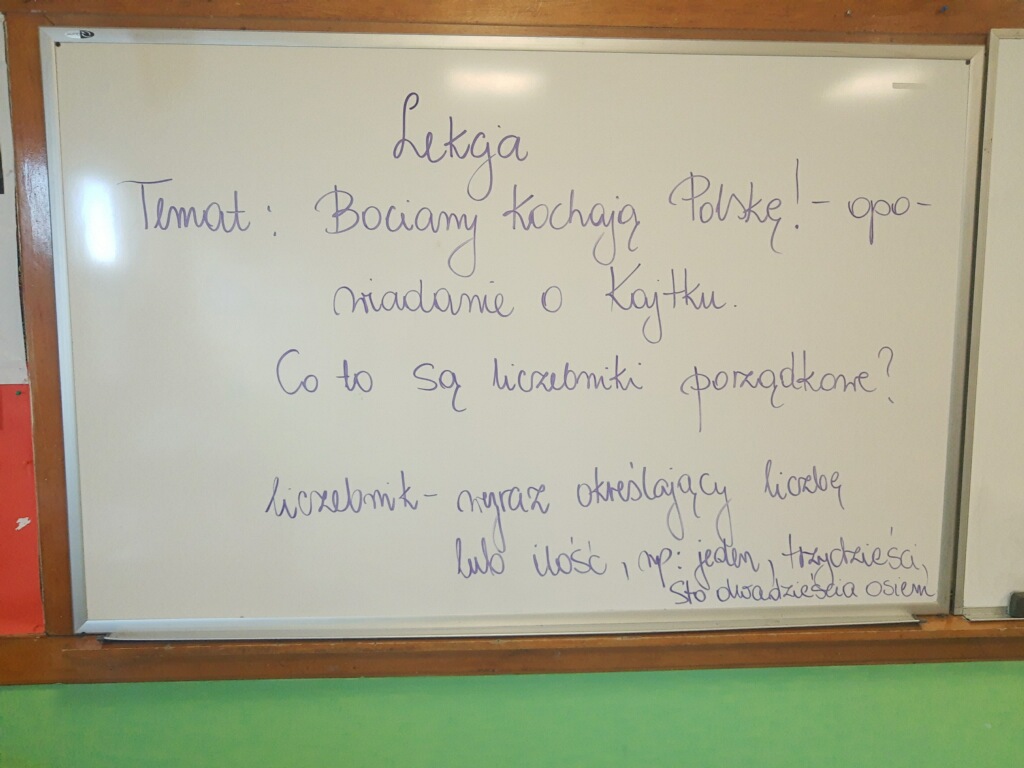 Lekcja
Temat: Bociany kochają Polskę! - opo-
wiadanie o Kajtku.
Co to są liczebniki porządkowe?
liczebnik - wyraz określający liczbę
lub ilość, np: jeden, trzydzieści,
sto dwadzieścia osiem